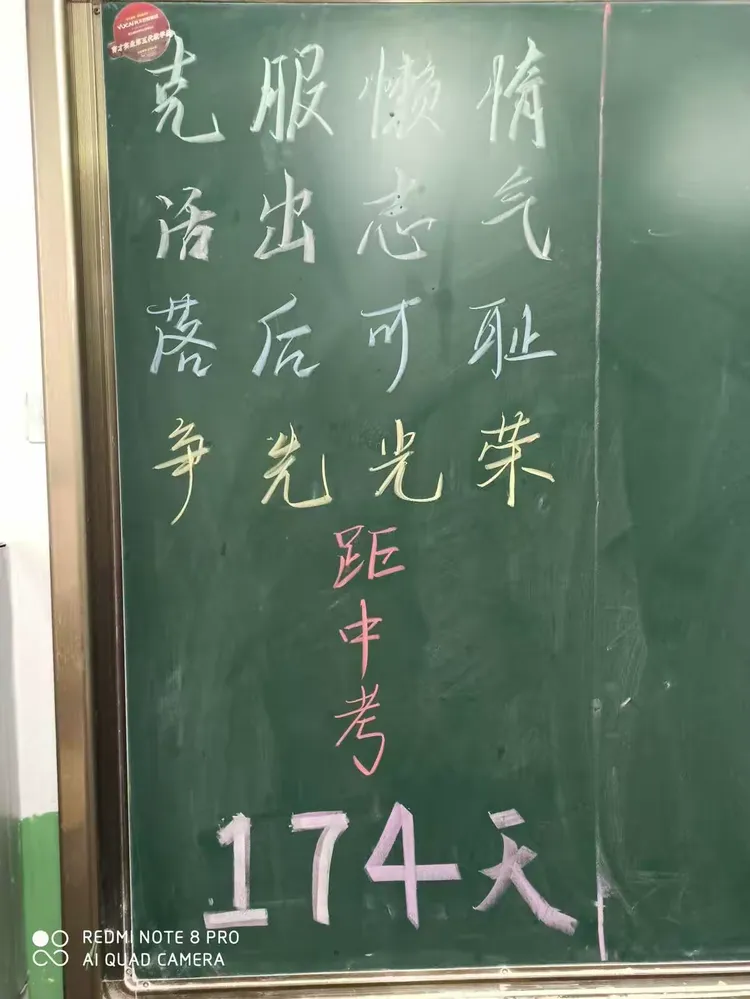 克服懒惰
活出志气
落后可耻
争先光荣
距中考
174天
REDMI NOTE 8 PRO
AI QUAD CAMERA